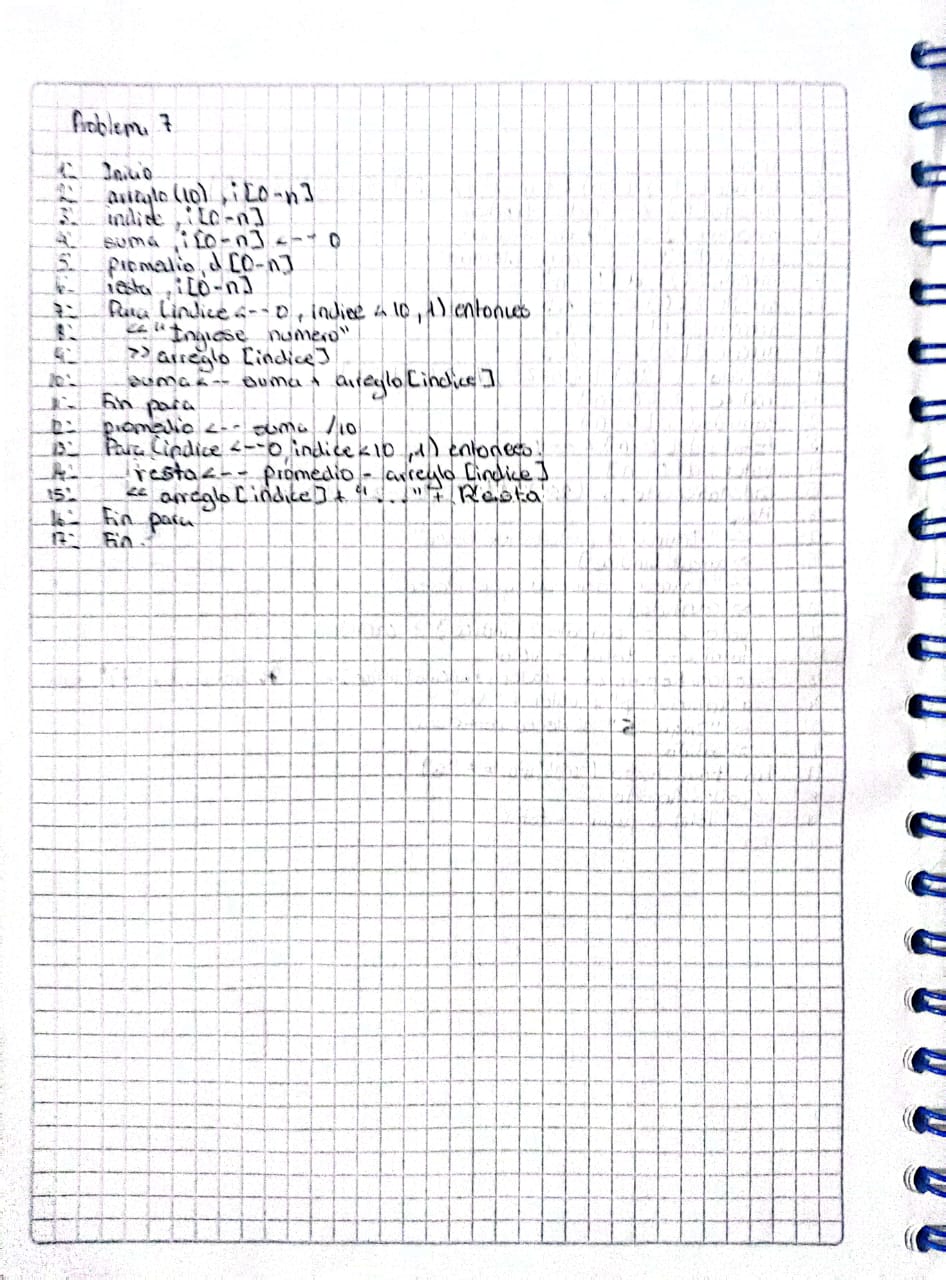 Problema 7
1- Inicio
2- arreglo (10) , i [0-n]
3- indice , i [0-n]
4- suma , i [0-n] <-- 0
5- promedio, d [0-n]
6- resta , i [0-n]
7- Para (indice <-- 0, indice < 10, 1) entonces
8- << "Ingrese numero"
9- >> arreglo [indice]
10- suma <-- suma + arreglo [indice]
11- Fin para
12- promedio <-- suma /10
13- Para (indice <-- 0, indice < 10, 1) entonces:
14- resta <-- promedio - arreglo [indice]
15- << arreglo [indice] + "..." + Resta
16- Fin para
17- Fin.